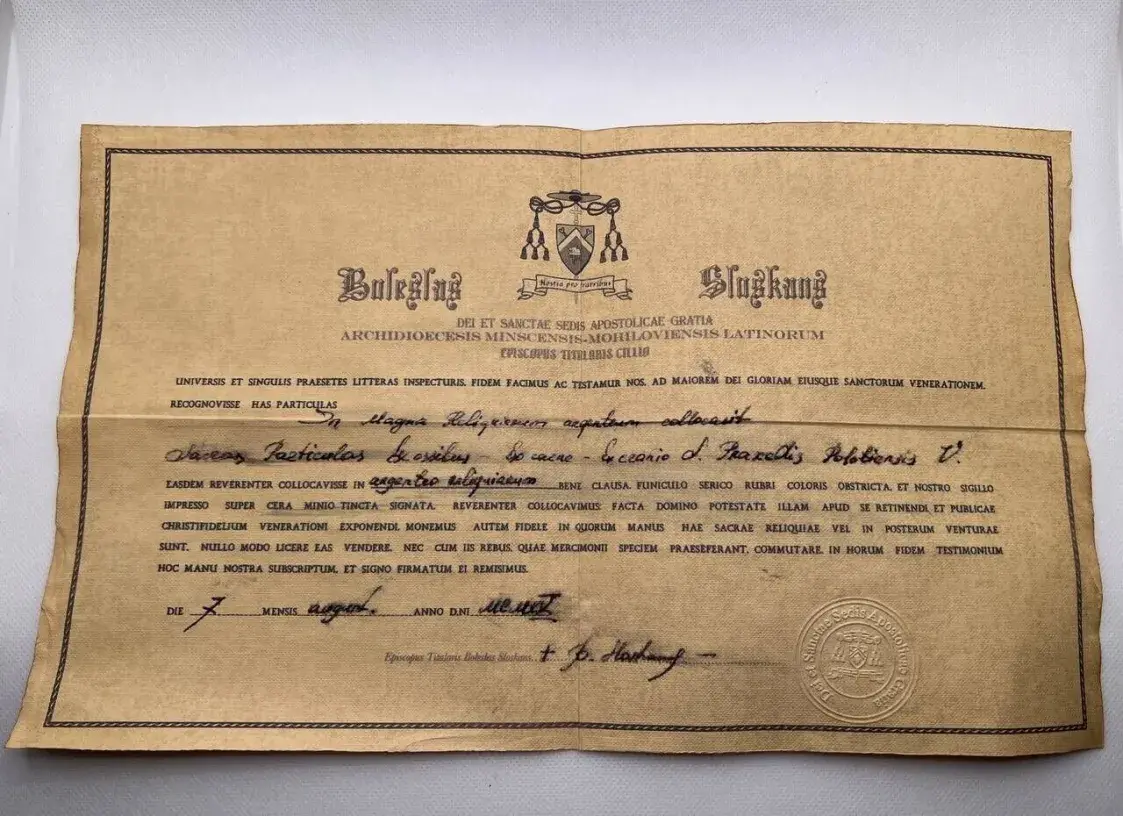 Boleslas Sloskans
Hostia pro fratribus
DEI ET SANCTAE SEDIS APOSTOLICAE GRATIA
ARCHIDIOECESIS MINSCENSIS-MOHILOVIENSIS LATINORUM
EPISCOPUS TITULARIS CILLIO
UNIVERSIS ET SINGULIS PRAESETES LITTERAS INSPECTURIS, FIDEM FACIMUS AC TESTAMUR NOS, AD MAIOREM DEI GLORIAM EIUSQUE SANCTORUM VENERATIONEM,
RECOGNOVISSE HAS PARTICULAS
In Magna Reliquiarum argenteum collocavit
Sacras Particulas Ex ossibus - Ex carne - Ex cranio S. Praxedis Polotiensis V.
EASDEM REVERENTER COLLOCAVISSE IN argenteo reliquiarum BENE CLAUSA, FUNICULO SERICO RUBRI COLORIS OBSTRICTA, ET NOSTRO SIGILLO
IMPRESSO SUPER CERA MINIO TINCTA SIGNATA, REVERENTER COLLOCAVIMUS: FACTA DOMINO POTESTATE ILLAM APUD SE RETINENDI, ET PUBLICAE
CHRISTIFIDELIUM VENERATIONI EXPONENDI, MONEMUS AUTEM FIDELE IN QUORUM MANUS HAE SACRAE RELIQUIAE VEL IN POSTERUM VENTURAE
SUNT, NULLO MODO LICERE EAS VENDERE, NEC CUM IIS REBUS, QUAE MERCIMONII SPECIEM PRAESEFERANT, COMMUTARE, IN HORUM FIDEM TESTIMONIUM
HOC MANU NOSTRA SUBSCRIPTUM, ET SIGNO FIRMATUM EI REMISIMUS.
DIE 7 MENSIS august. ANNO D.NI
Episcopus Titularis Boleslas Sloskans + B. Sloskans
Dei et Sanctae Sedis Apostolicae Gratia